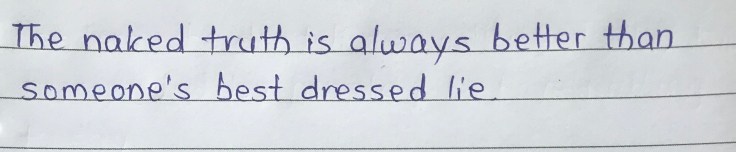 The naked truth is always better than
someone's best dressed lie.